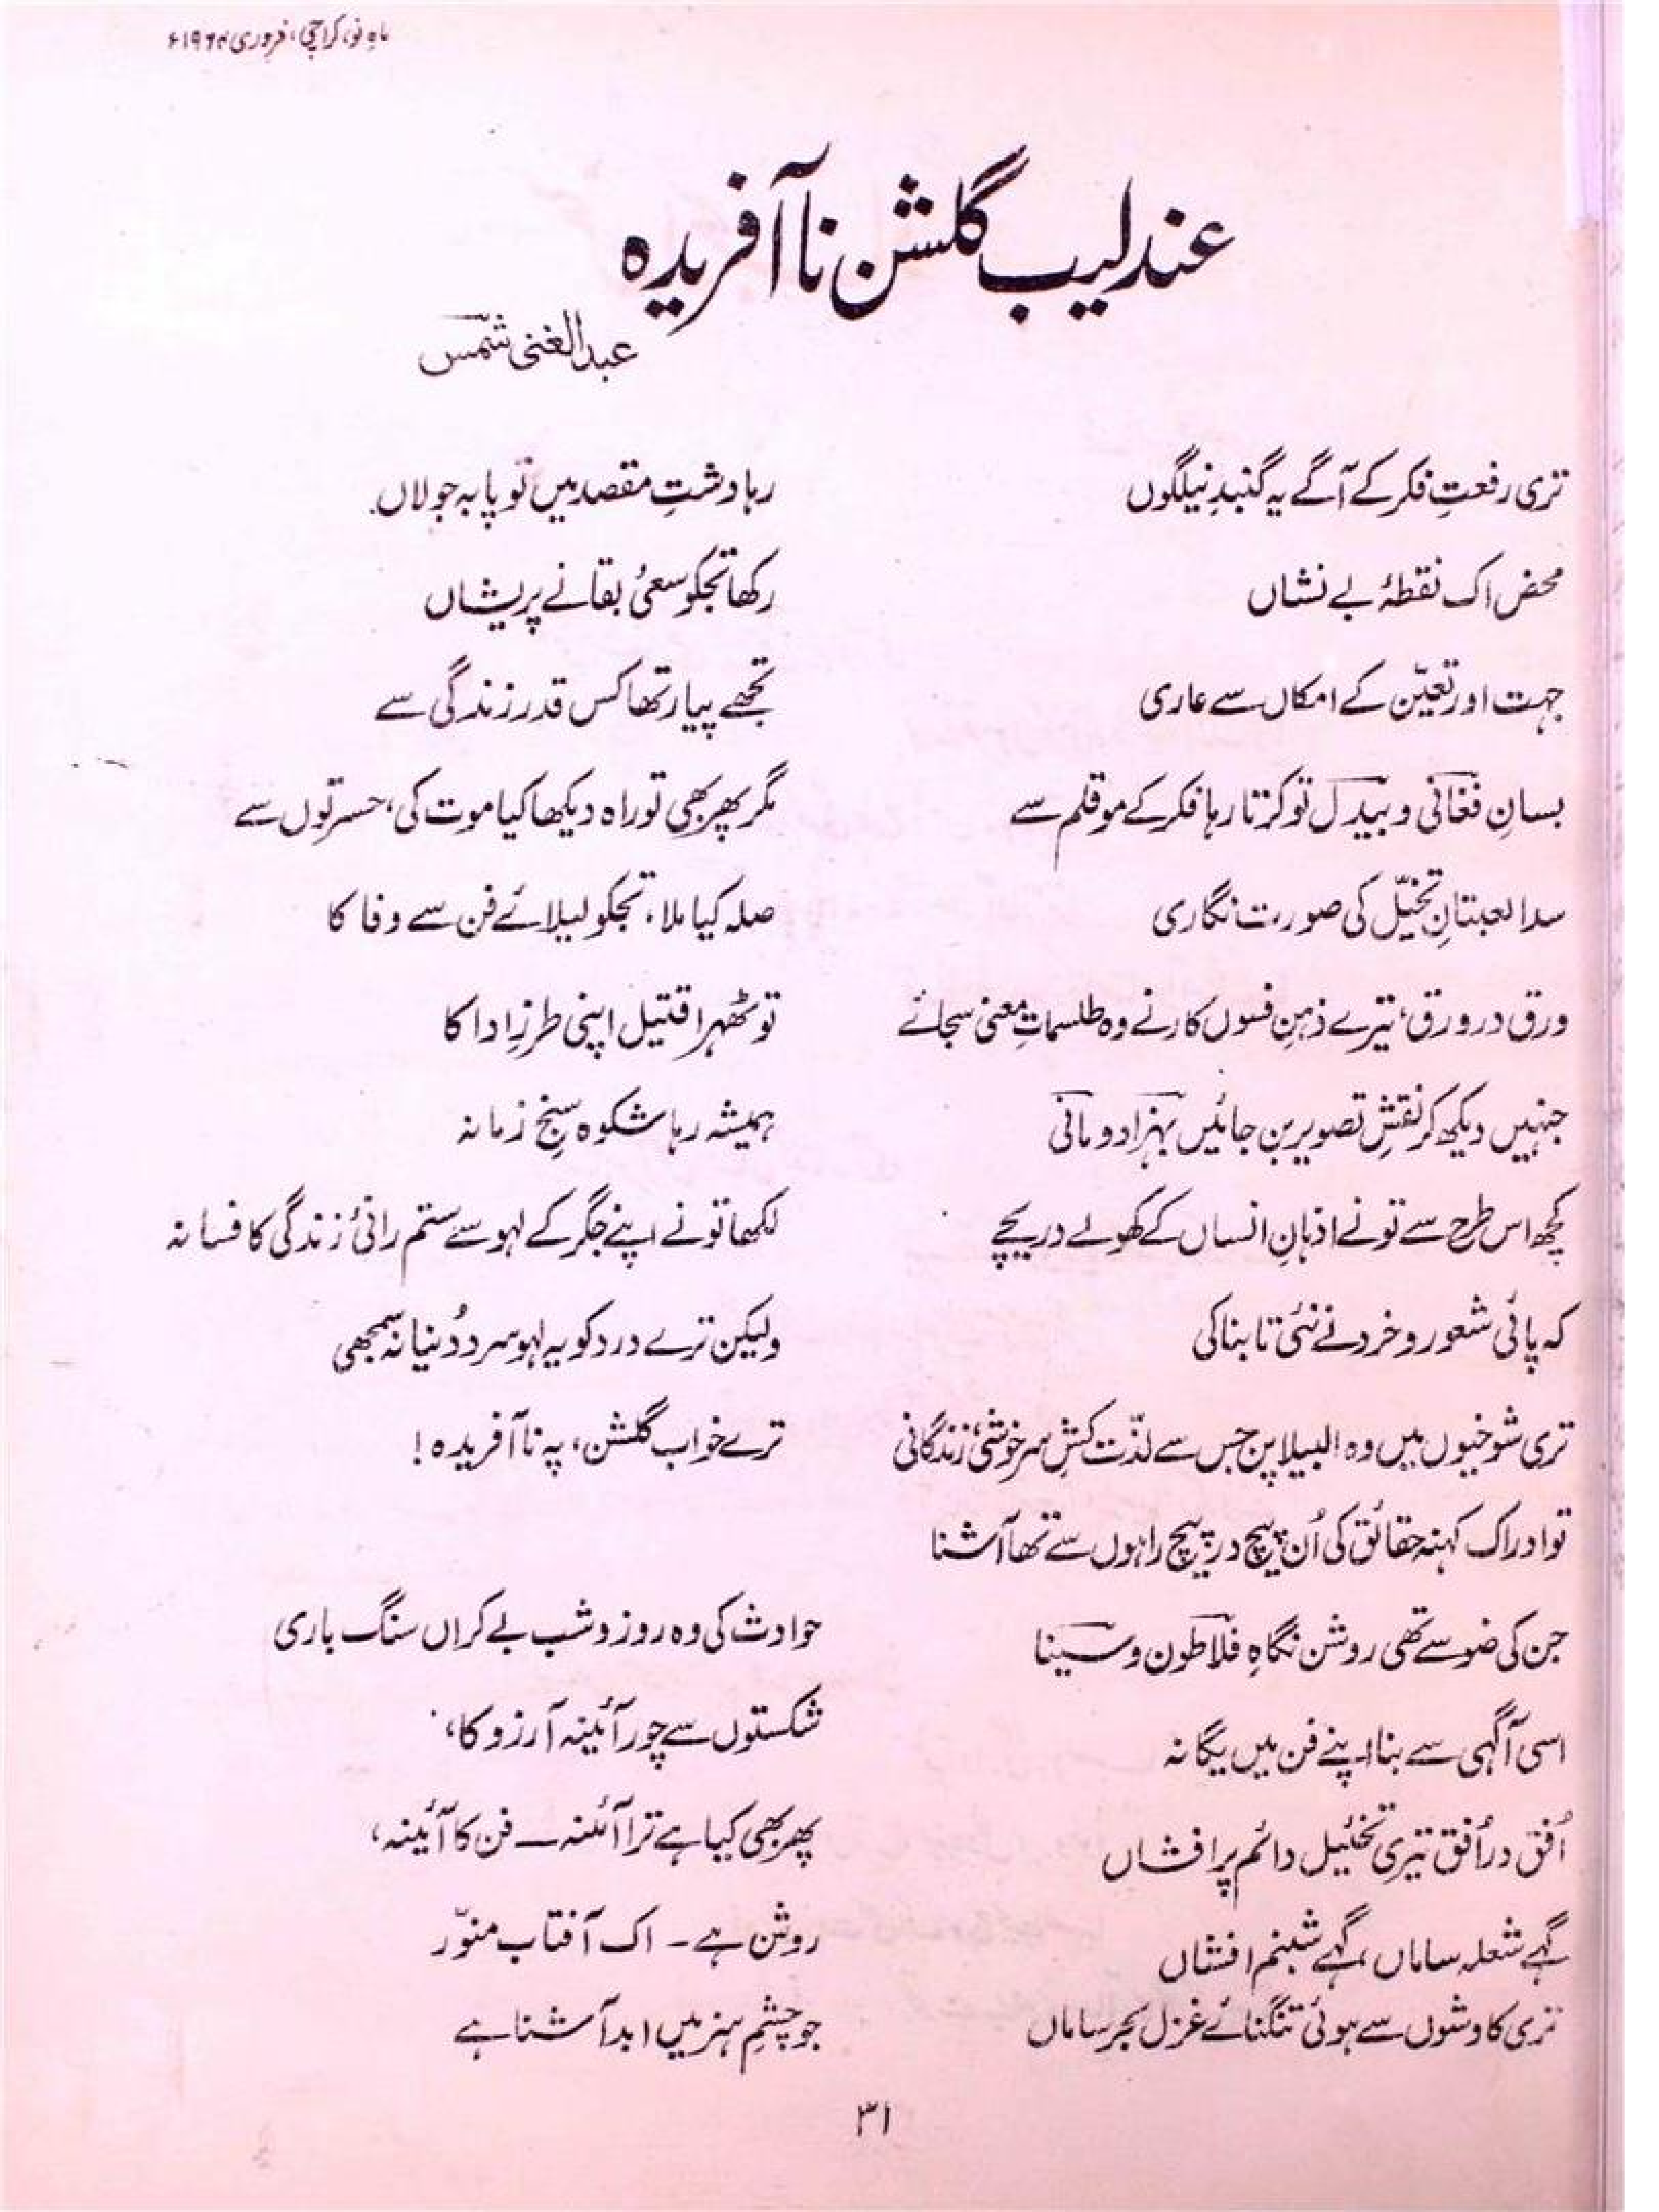 ماہِ نو، کراچی، فروری ۱۹۶۴ء
عندلیب گلشن ناآفریدہ
عبدالغنی شمسؔ
تری رفعتِ فکر کے آگے یہ گنبدِ نیلگوں
محض اک نقطۂ بے نشاں
جہت اور تعیّن کے امکاں سے عاری
بسانِ فغانیؔ و بیدلؔ تو کرتا رہا فکر کے موقلم سے
سدا لعبتانِ تخیّل کی صورت نگاری
ورق در ورق، تیرے ذہنِ فسوں کار نے وہ طلسماتِ معنی سجائے
جنہیں دیکھ کر نقشِ تصویر بن جائیں بہزادؔ و مانیؔ
کچھ اس طرح سے تو نے اذہانِ انساں کے کھولے دریچے
کہ پائی شعور و خرد نے نئی تابناکی
تری شوخیوں میں وہ البیلا پن جس سے لذّت کشِ سرخوشیٔ زندگانی
تو ادراک کہنہ حقائق کی اُن پیچ در پیچ راہوں سے تھا آشنا
جن کی ضو سے تھی روشن نگاہِ فلاطوںؔ و سیناؔ
اسی آگہی سے بنا اپنے فن میں یگانہ
اُفق در اُفق تیری تخئیل دائم پر افشاں
گہے شعلہ ساماں، گہے شبنم افشاں
تری کاوشوں سے ہوئی تنگنائے غزل بحر ساماں
رہا دشتِ مقصد میں تو پا بہ جولاں
رکھا تجکو سعیٔ بقا نے پریشاں
تجھے پیار تھا کس قدر زندگی سے
مگر پھر بھی تو راہ دیکھا کیا موت کی، حسرتوں سے
صلہ کیا ملا، تجکو لیلائے فن سے وفا کا
تو ٹھہرا قتیل اپنی طرزِ ادا کا
ہمیشہ رہا شکوہ سنجِ زمانہ
لکھا تو نے اپنے جگر کے لہو سے ستم رانیٔ زندگی کا فسانہ
ولیکن ترے درد کو یہ لہو سرد دُنیا نہ سمجھی
ترے خواب گلشن، پہ ناآفریدہ!
حوادث کی وہ روز و شب بے کراں سنگ باری
شکستوں سے چور آئینہ آرزو کا،
پھر بھی کیا ہے ترا آئنہ ــ فن کا آئینہ،
روشن ہے ۔ اک آفتاب منوّر
جو چشمِ ہنر میں ابد آشنا ہے
۳۱